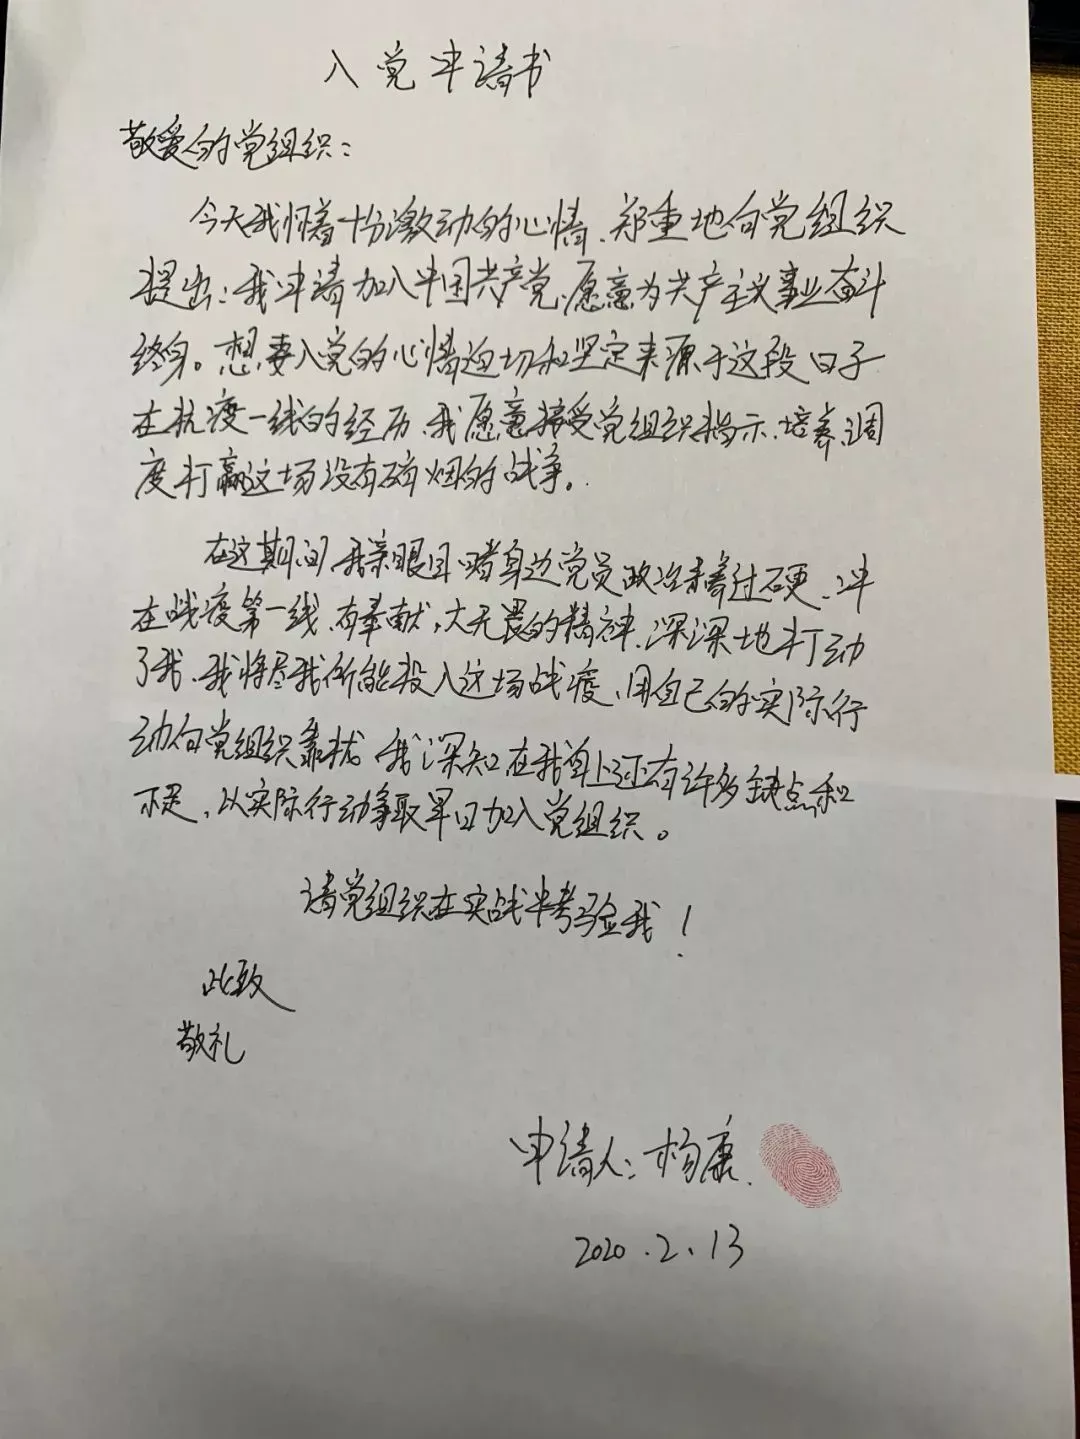 入党申请书
敬爱的党组织：
今天我怀着十分激动的心情、郑重地向党组织
提出：我申请加入中国共产党、愿意为共产主义事业奋斗
终身。想要入党的心情迫切和坚定来源于这段日子
在抗疫一线的经历、我愿意接受党组织指示、培养、调
度打赢这场没有硝烟的战争。
在这期间 我亲眼目睹身边党员政治素养过硬、冲
在战疫第一线、有奉献，大无畏的精神、深深地打动
了我、我将尽我所能投入这场战疫、用自己的实际行
动向党组织靠拢 我深知在我身上还有许多缺点和
不足、以实际行动争取早日加入党组织。
请党组织在实战中考验我！
此致
敬礼
申请人：杨康.
2020.2.13